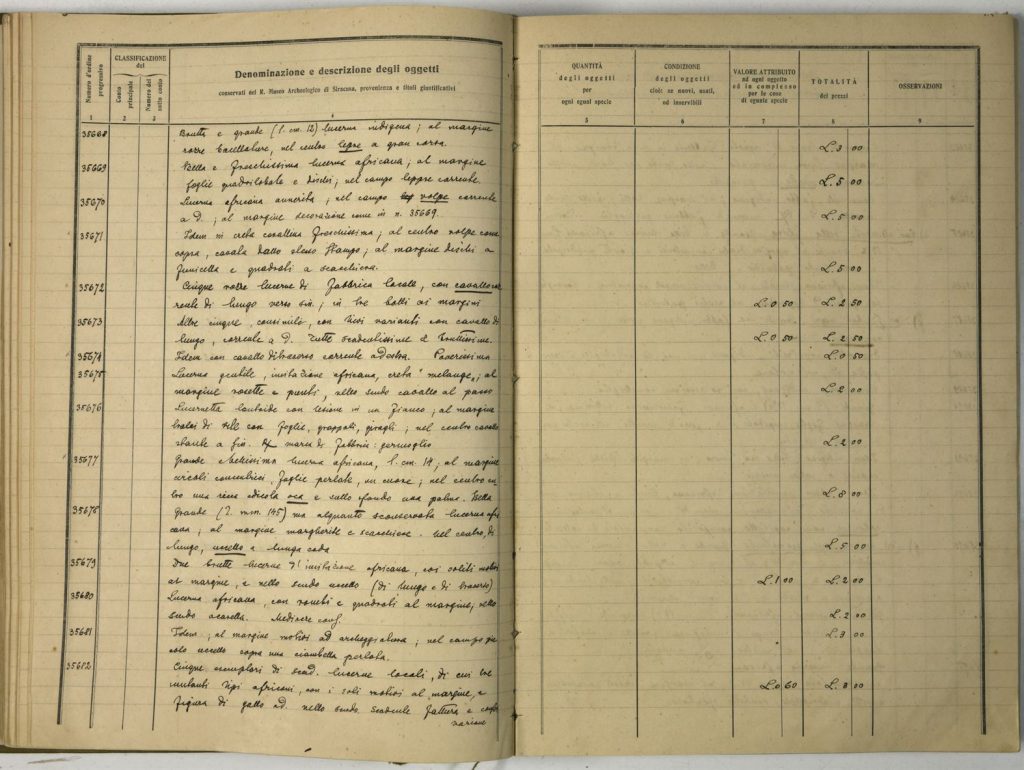 Numero d'ordine progressivo
CLASSIFICAZIONE del
Conto principale
Numero del sotto conto
Denominazione e descrizione degli oggetti
conservati nel R. Museo Archeologico di Siracusa, provenienza e titoli giustificativi
1 2 3 4
35668 Brutta e grande (l. cm. 12) lucerna indigena; al margine
rozze baccellature, nel centro lepre a gran corsa.
35669 Bella e freschissima lucerna africana; al margine
foglie quadrilobate e dischi; nel campo leppre corrente.
35670 Lucerna africana annerita; nel campo volpe corrente
a d.; al margine decorazione come in n. 35669.
35671 Idem in creta corallina freschissima; al centro volpe come
sopra, cavata dallo stesso stampo; al margine dischi a
funicella e quadrati a scacchiera.
35672 Cinque rozze lucerne di fabbrica locale, con cavallo cor
rente di lungo verso sin.; in tre bolli ai margini
35673 Altre cinque, consimile, con lievi varianti con cavallo di
lungo, corrente a d. Tutte scadentissime e bruttissime.
35674 Idem con cavallo di traverso corrente a destra. Poverissima
35675 Lucerna gentile, imitazione africana, creta "melange"; al
margine rosette e punti, nello scudo cavallo al passo
35676 Lucernetta lautoide con lesione in un fianco; al margine
tralci di vite con foglie, grappoli, giragli; nel centro cavallo
a sin. marca di fabbrica: germoglio
35677 Grande e bellissima lucerna africana, l. cm. 14; al margine
circoli concentrici, foglie perlate, un cuore; nel centro en-
tro una edicola oca e sullo fondo una palma. Bella
35678 Grande (l. mm. 145) ma alquanto sconservata lucerna afri
cana; al margine margherite e scacchiere. Nel centro, di
lungo, uccello a lunga coda
35679 Due brutte lucerne d'imitazione africana, coi soliti motivi
al margine, e nello scudo uccello (di lungo e di traverso)
35680 Lucerna africana, con rombi e quadrati al margine; nello
scudo Mediocre cons.
35681 Idem; al margine motivi ad archeggiatura; nel campo pic
colo uccello sopra una ciambella perlata.
35682 Cinque esemplari di scad. lucerne locali, di cui tre
imitanti tipi africani, con i soli motivi al margine, e
figura di gallo a d. nello scudo. Scadente fattura e conser
vazione
QUANTITÀ degli oggetti per ogni egual specie
CONDIZIONE degli oggetti cioè: se nuovi, usati, od inservibili
VALORE ATTRIBUITO ad ogni oggetto ed in complesso per le cose di eguale specie
TOTALITÀ dei prezzi
OSSERVAZIONI
5 6 7 8 9
L. 3 00
L. 5 00
L. 5 00
L. 5 00
L. 0 50 L. 2 50
L. 0 50 L. 2 50
L. 0 50
L. 2 00
L. 2 00
L. 8 00
L. 5 00
L. 1 00 L. 2 00
L. 2 00
L. 3 00
L. 0 60 L. 3 00